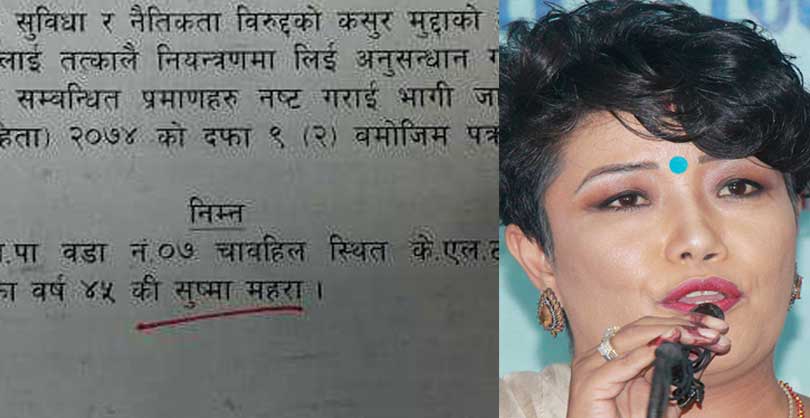 सुविधा र नैतिकता विरुद्दको कसुर मुद्दाको
लाई तत्कालै नियन्त्रणमा लिई अनुसन्धान
सम्वन्धित प्रमाणहरु नष्ट गराई भागी
२०७४ को दफा ९ (२) वमोजिम
निम्न
पा वडा नं.०७ चावहिल स्थित के.एल.
वर्ष ४५ की सुष्मा महरा ।